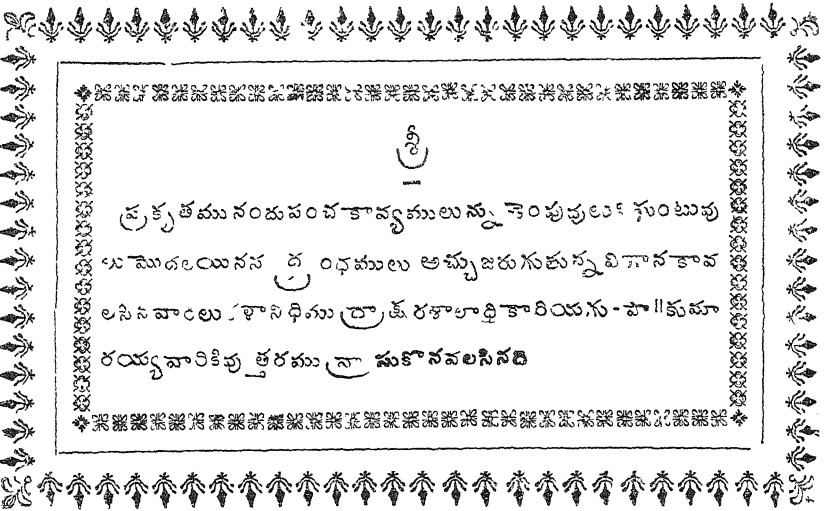 శ్రీ
ప్రకృతమునందుపంచకావ్యములున్ను కెంపువులు గుంటువు
లు మొదలయినస ద్గ్రంధములు అచ్చుజరుగుతున్నవి గాన కావ
లసినవారలు కళానిధిముద్రాక్షరశాలాధికారియగు-పా॥కుమా
రయ్యవారికివు త్తరము వ్రాసుకొనవలసినది